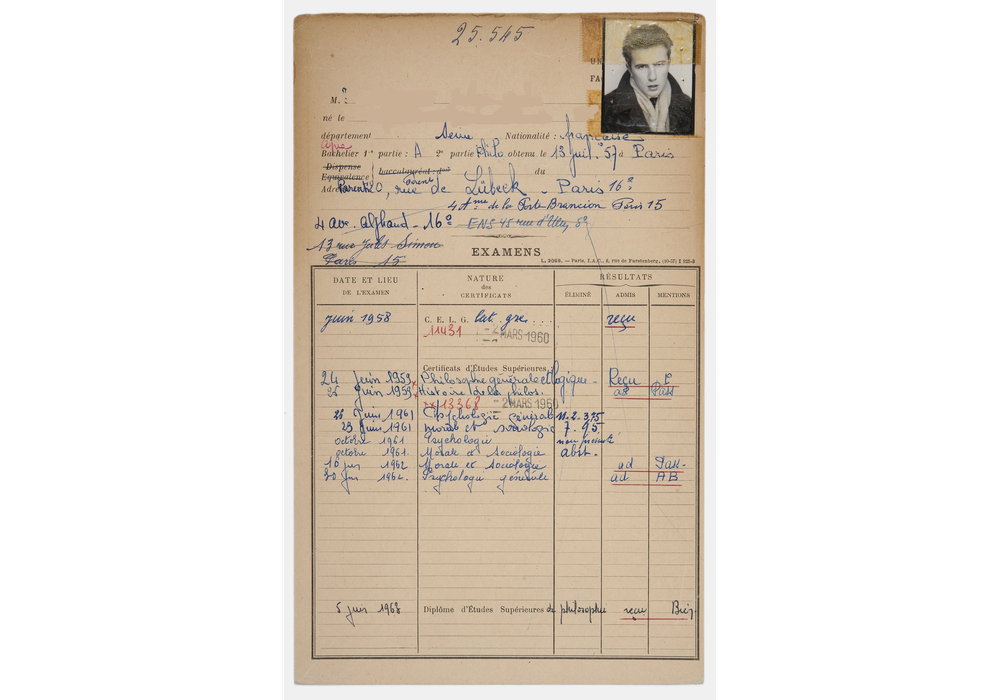 25.545
UN
FA
M.
né le
département Seine Nationalité : française
Bachelier 1re partie : A 2e partie Philo obtenu le 13 juil. 57 à Paris
Dispense
Equivalence baccalauréat du
Parent rue de Lübeck - Paris 16e
de la Porte Brancion Paris 15
4 av. Alphand - 16e ENS 45 rue d'Ulm, 5e
13 rue Jules Simon
Paris 15
EXAMENS
DATE ET LIEU DE L'EXAMEN NATURE des CERTIFICATS RÉSULTATS
ÉLIMINÉ ADMIS MENTIONS
juin 1958 C. E. L. G. lat. gre. reçu
11431 - 2 MARS 1960
Certificats d'Études Supérieures :
24 juin 1959 Philosophie générale et logique - Reçu P
25 juin 1959 Histoire de la philos. ad Pass
13368 - 2 MARS 1960
juin 1961 Psychologie générale
23 juin 1961 morale et sociologie 7.95
octobre 1961 Psychologie non présenté
octobre 1961 Morale et sociologie abst.
1962 Morale et sociologie ad Pass.
1962 Psychologie générale ad AB
5 juin 1963 Diplôme d'Études Supérieures de philosophie reçu